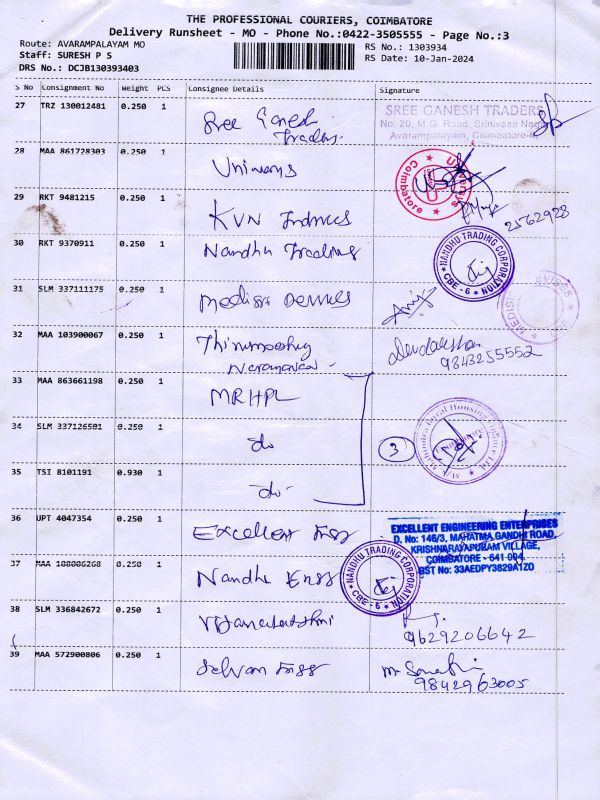 THE PROFESSIONAL COURIERS, COIMBATORE
Delivery Runsheet - MO - Phone No.:0422-3505555 - Page No.:3
Route: AVARAMPALAYAM MO
RS No.: 1303934
Staff: SURESH P S
RS Date: 10-Jan-2024
DRS No.: DCJB130393403
S No Consignment No Weight PCS Consignee Details Signature
27 TRZ 130012481 0.250 1 Sree Ganesh Traders
SREE GANESH TRADERS
No: 20, M.G. Road, Srinivasa Nagar
Avarampalayam, Coimbatore-6
28 MAA 861728303 0.250 1
Coimbatore
29 RKT 9481215 0.250 1 KVN
2562928
30 RKT 9370911 0.250 1 Nandhu Trading
NANDHU TRADING CORPORATION
CBE - 6
31 SLM 337111175 0.250 1
32 MAA 103900067 0.250 1
9843255552
33 MAA 863661198 0.250 1 MRHPL
34 SLM 337126501 0.250 1 do
3
35 TSI 8101191 0.930 1 do
36 UPT 4047354 0.250 1 Excellent Engg
EXCELLENT ENGINEERING ENTERPRISES
D. No: 146/3, MAHATMA GANDHI ROAD,
KRISHNARAYAPURAM VILLAGE,
COIMBATORE - 641 004.
GST No: 33AEDPY3829A1Z0
37 MAA 108006268 0.250 1 Nandhu Engg
NANDHU TRADING CORPORATION
CBE - 6
38 SLM 336842672 0.250 1
9629206642
39 MAA 572900806 0.250 1 Selvam Engg
9842963005